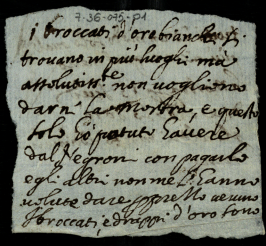 7-36-075-p1
i broccati d'oro bianchi si
trovano in più luoghi mà
assolutte non vogliono
darn la mostra, e questo
solo hò potuto havere
dal Negroni con pagarlo
e gli altri non me l'hanno
volute dare
i broccati, e drappi d'oro sono